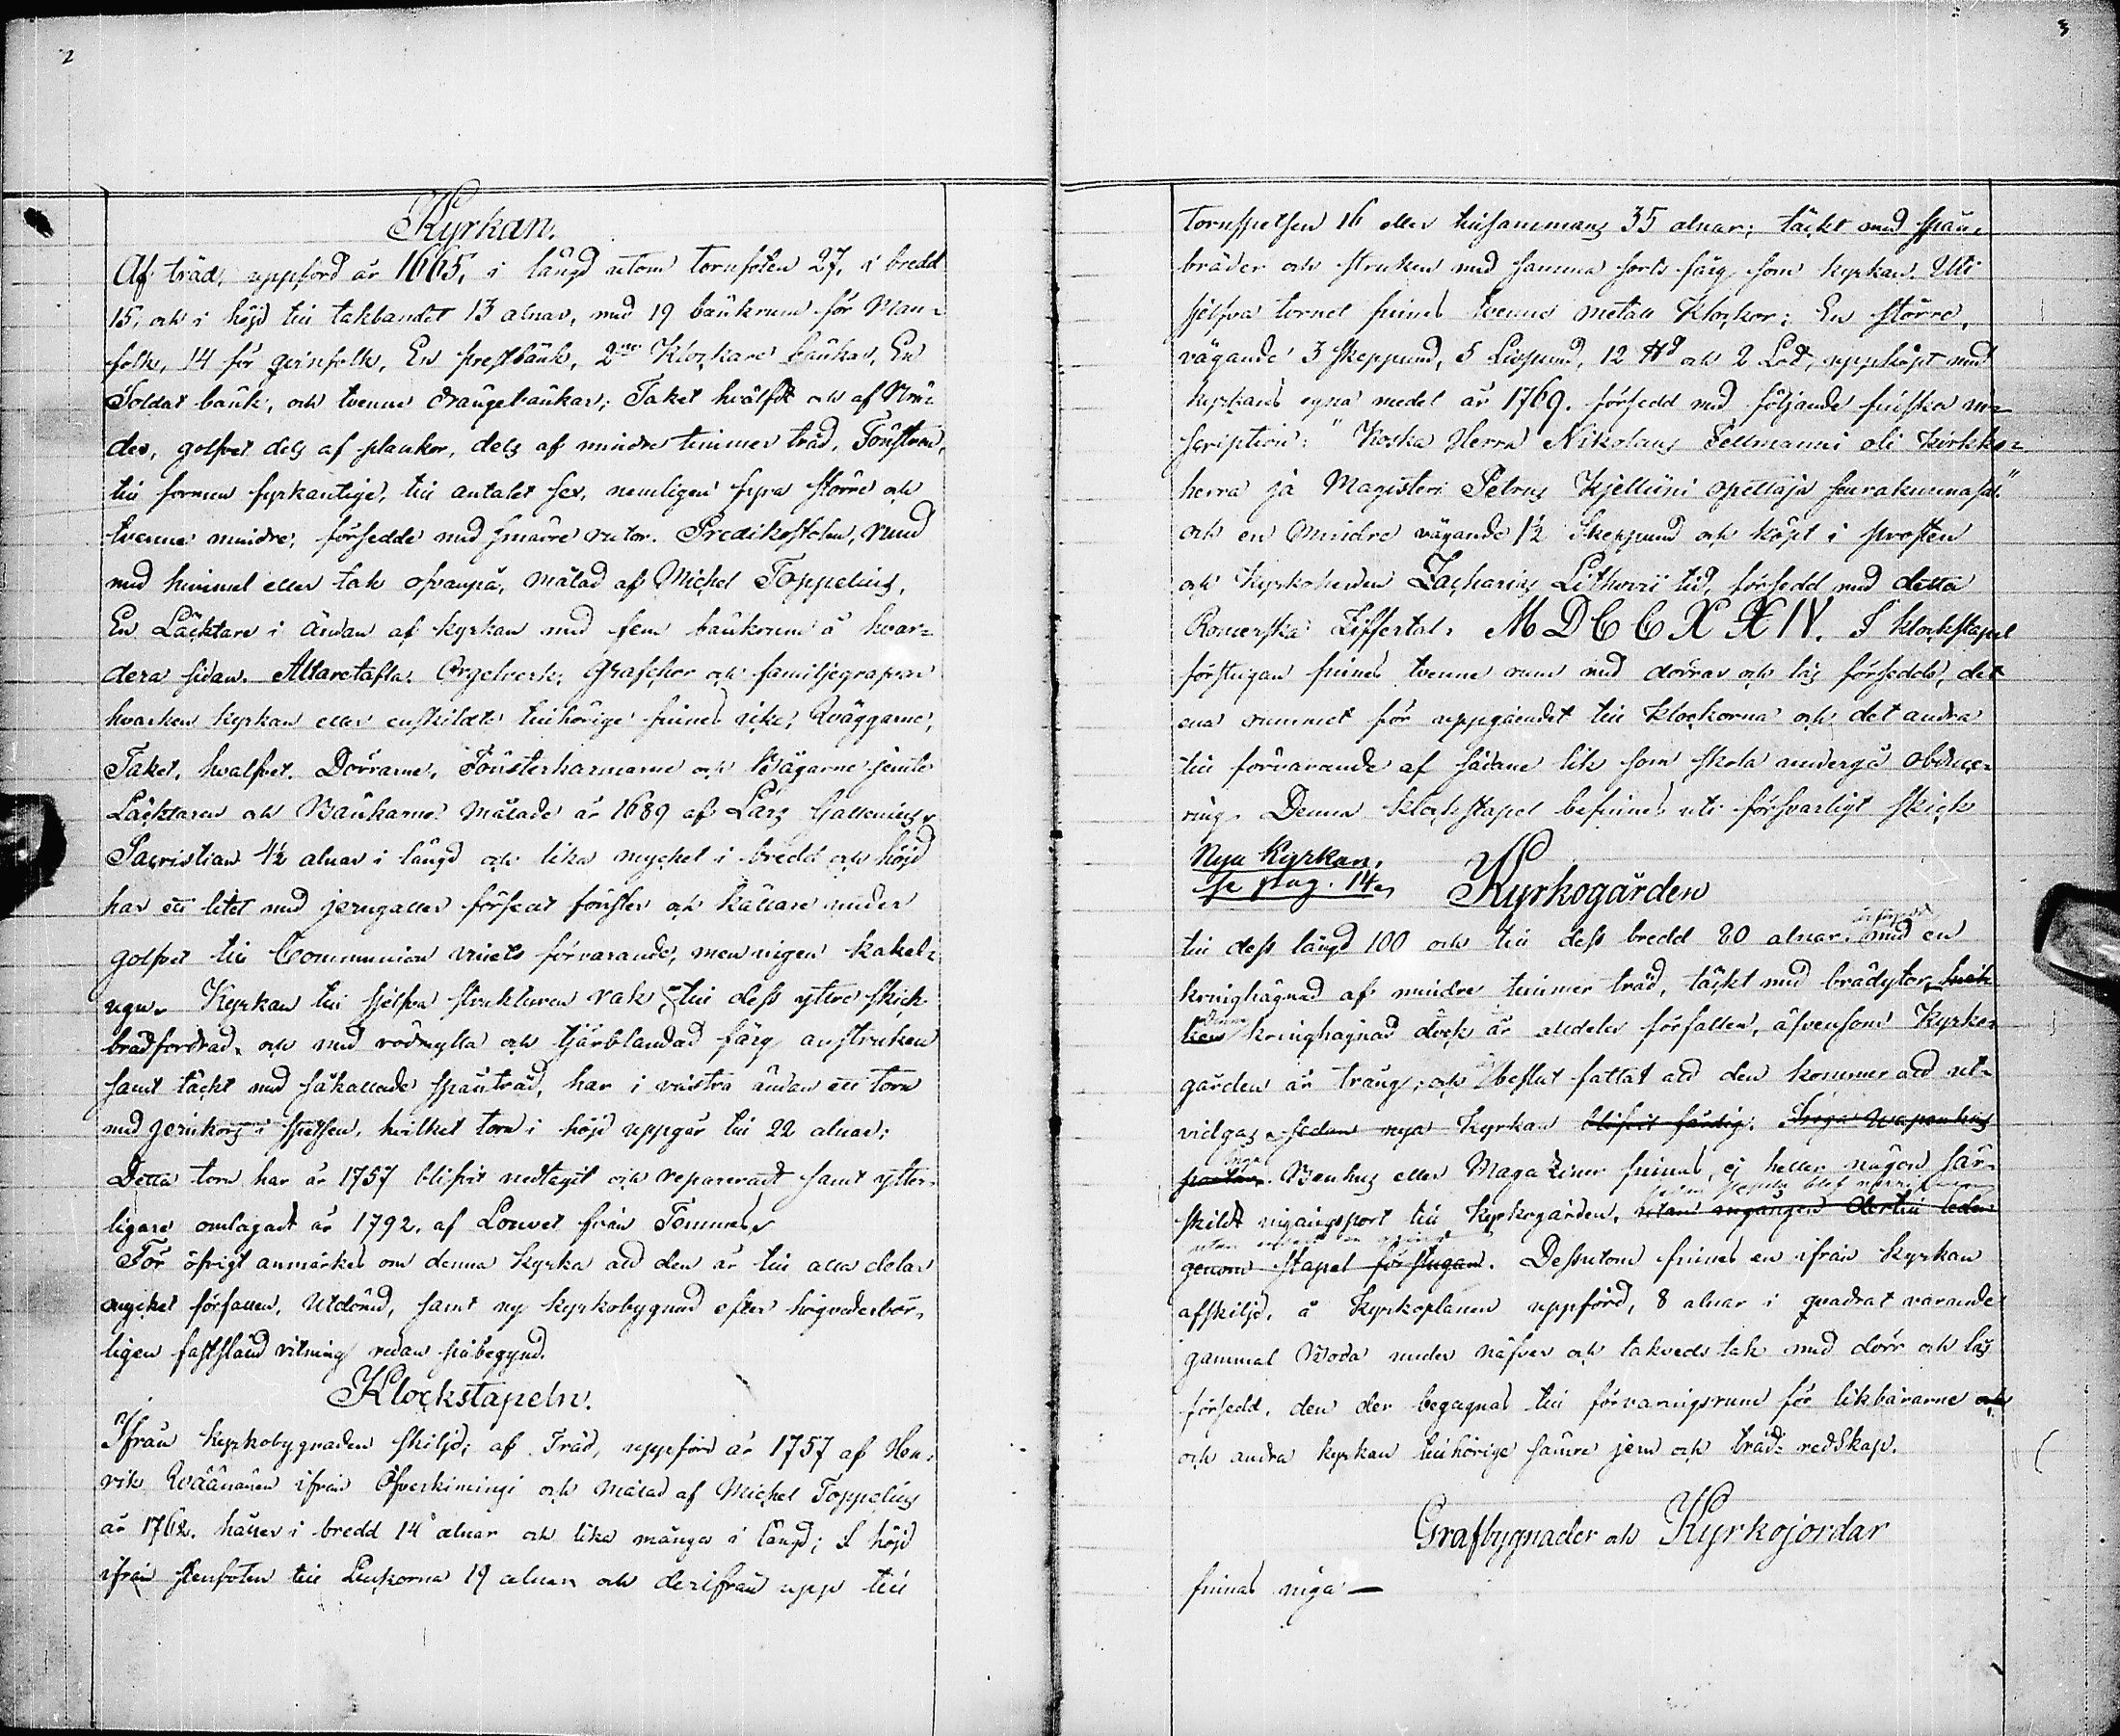 2
Kyrkan.
Af träd, uppförd år 1665, i längd utom tornfoten 27, i bredd
15, och i höjd till takbandet 13 alnar, med 19 bänkrum för Man-
folk, 14 för qvinfolk, En prestbänk, 2ne Klockare bänkar, En
Soldat bänk, och tvenne trängbänkar; Taket hvälft och af Brä-
der, golfvet dels af plankor, dels af mindre timmer träd, Fönstren,
till formen fyrkantige, till antalet sex, nemligen fyra större och
tvenne mindre, försedde med smärre rutor. Predikostolen, rund
med himmel eller tak ofvanpå, målad af Michel Toppelius,
En Läcktare i ändan af kyrkan med fem bänkrum å hvar-
dera sidan. Altaretafla, Orgelverk, Grafchor och familjegrafvar
hvarken kyrkan eller enskildte tillhörige finnes icke; Wäggarne,
Taket, hvalfvet, Dörrarne, Fönsterkarmarne och Bågarne jemte
Läcktaren och Bänkarne målade år 1689 af Lars Gallenius,
Sacristian 4½ alnar i längd och lika mycket i bredd och höjd
har ett litet med jerngaller försedt fönster och källare under
golfvet till Communion vinets förvarande, men ingen kakel-
ugn. Kyrkan till sjelfva strukturen rak, till dess yttre skick
brädfordrad, och med rödmylla och tjärblandad färg anstruken
samt täckt med såkallade spånträd, har i vestra ändan ett torn
med jernkors i spetsen, hvilket torn i höjd uppgår till 22 alnar;
Detta torn har år 1757 blifvit nedtagit och repareradt samt ytter-
ligare omlagadt år 1792, af Louvet från Temmes,
För öfrigt anmärkes om denna kyrka att den är till alla delar
mycket förfallen, Utdömd, samt ny kyrkobygnad efter högvederbör-
ligen fastställd ritning redan påbegynd.
Klockstapeln.
Ifrån kyrkobygnaden skiljd; af Träd, uppförd år 1757 af Hen-
rik Wäänänen ifrån Öfverkimingi och målad af Michel Toppelius
år 1762. håller i bredd 14 alnar och lika många i längd; I höjd
ifrån stenfoten till Luckorna 19 alnar och derifrån upp till
3
tornspetsen 16 eller tillsammans 35 alnar; täckt med spån-
bräder och struken med samma sorts färg som kyrkan. Uti
sjelfva tornet finnes tvenne metall Klockor; En större,
vägande 3 Skeppund, 5 Lispund, 12 ℔d och 2 Lod, uppköpt med
kyrkans egna medel år 1769. försedd med följande finska in-
scription: "Koska Herra Nikolaus Fellmanni oli Kirkko-
herra ja Magisteri Petrus Kjelliini opettaja seurakunnasa."
och en mindre vägande 1½ Skeppund och köpt i prosten
och Kyrkoherden Zacharias Lithovii tid, försedd med detta
Romerska Ziffertal: M D C C X X I V. I klockstapel
förstugan finnes tvenne rum med dörrar och lås försedde, det
ena rummet för uppgåendet till klockorna och det andra
till förvarande af sådane lik som skola undergå obduce-
ring. Denna klockstapel befinnes uti försvarligt skick
Nya Kyrkan,
se pag. 14.
Kyrkogården
till dess längd 100 och till dess bredd 80 alnar. med en
kringhägnad af mindre timmer träd, täckt med brädytor,
Denna
kringhägnad dock är alldeles förfallen, äfvensom Kyrko-
gården är trång; och beslut fattat att den kommer att ut-
vidgas sedan nya Kyrkan blifvit färdig. Inga Wapenhus
Inga
Benhus eller Magaziner finnes, ej heller någon sär-
skildt ingångsport till Kyrkogården,
genom stapel förstugan. Dessutom finnes en ifrån Kyrkan
afskiljd, å Kyrkoplanen uppförd, 8 alnar i quadrat varande
gammal Boda under näfver och takveds tak med dörr och lås
försedd, den der begagnas till förvaringsrum för likbårarne och
och andra kyrkan tillhörige sämre jern och träd- redskap.
Grafbygnader och Kyrkojordar
finnas inga —